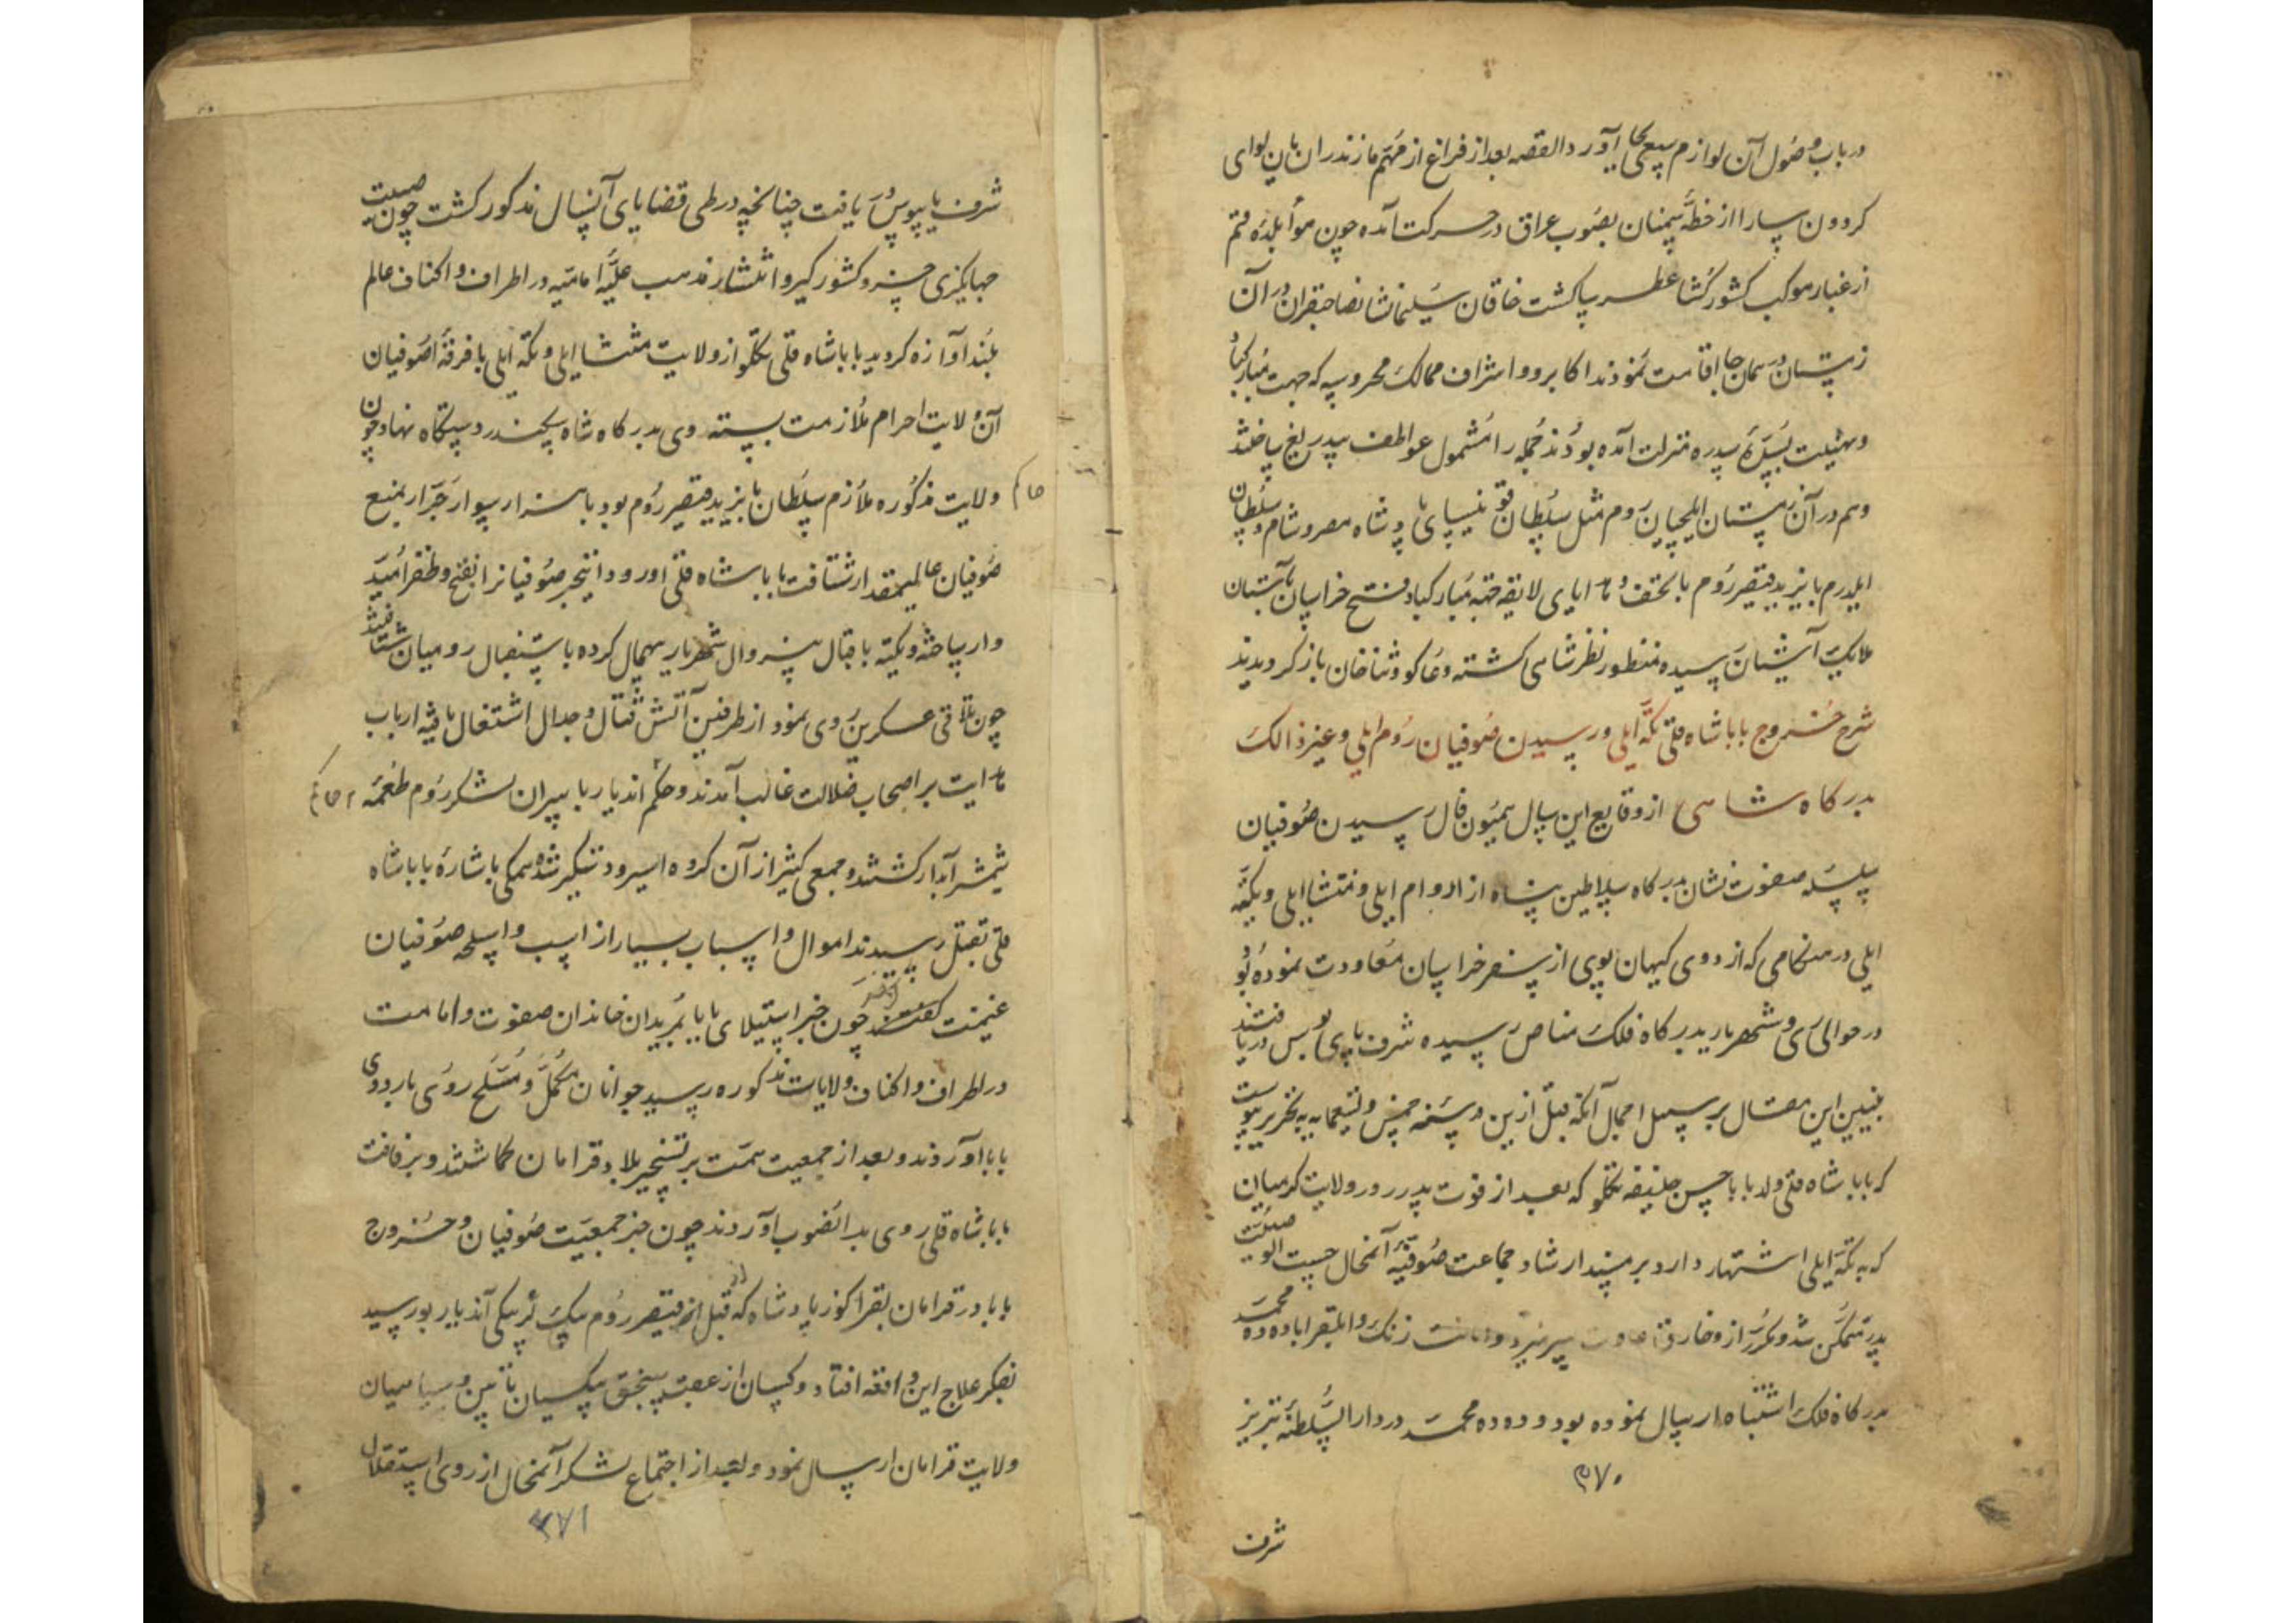 در باب وصول آن لوازم سعی بجای آورد القصه بعد از فراغ از مهم مازندران ماهچه لوای
کردون سا را از خطه سمنان بصوب عراق در حرکت آمده چون هوا بلده قم
از غبار موکب کشورکشا عطر سا کشت خاقان سلیمانشان صاحبقران در آن
زمستان در همان جا اقامت نمودند اکابر و اشراف ممالک محروسه که جهت مبارکباد
و تهنیت بسده سدره منزلت آمده بودند جمله را مشمول عواطف بیدریغ ساختند
و هم در آن زمستان ایلچیان روم مثل سلطان قانیسای پادشاه مصر و شام و سلطان
ایلدرم بایزید قیصر روم با تحف و هدایای لایقه جهة مبارکباد فتح خراسان بآستان
ملایک آشیان رسیده منظور نظر شاهی کشته دعا کو و ثنا خوان باز کردیدند
شرح خروج بابا شاه قلی تکه ایلی و رسیدن صوفیان روم ایلی و غیر ذالک
بدرکاه شاهی از وقایع این سال همیون فال رسیدن صوفیان
سلسله صفوت نشان بدرکاه سلاطین پناه از الروم ایلی و منتشا ایلی و تکه
ایلی در هنکامی که اردوی کیهان پوی از سفر خراسان معاودت نموده بود
در حوالی ری و شهریار بدرکاه فلک مناص رسیده شرف پای بوس دریافتند
تبیین این مقال بر سبیل اجمال آنکه قبل ازین در سنه خمس و تسعمایه به تحریر پیوست
که بابا شاه قلی ولد بابا حسن خلیفه تکلو که بعد از فوت پدر در ولایت کرمیان
که به تکه ایلی اشتهار دارد بر مسند ارشاد جماعت صوفیه آنمحال حسب الوصیت
پدر متمکن شد و مکرر از و خارق عادت سر میزد و دده محمد
بدرکاه فلک اشتباه ارسال نموده بود و دده محمد در دار السلطنه تبریز
۲۷۰
شرف
شرف پابوس یافت چنانچه در طی قضایای آنسال مذکور کشت چون صیت
جهانکیری خسرو کشورکیر و انتشار مذهب علیه امامیه در اطراف و اکناف عالم
بلند آوازه کردید بابا شاه قلی تکلو از ولایت منتشا ایلی و تکه ایلی با فرقه صوفیان
آن ولایت احرام ملازمت بسته روی بدرکاه شاه سکندر دستکاه نهاد چون
حاکم ولایت مذکوره ملازم سلطان بایزید قیصر روم بود با هزار سوار جرار بمنع
صوفیان عالیمقدار شتافت بابا شاه قلی اوردو انجر صوفیانرا بفتح و ظفر امید
وار ساخته و تکیه باقبال بیزوال شهریار بیهمال کرده باستقبال رومیان شتافتند
چون تلاقی عسکرین روی نمود از طرفین آتش قتال و جدال اشتعال یافته ارباب
هدایت بر اصحاب ضلالت غالب آمدند و حاکم اندیار با سران لشکر روم طعمه
شمشیر آبدار کشتند و جمعی کثیر از آن کروه اسیر و دستکیر شده همکی باشاره بابا شاه
قلی بقتل رسیدند اموال و اسباب بسیار از اسب و اسلحه صوفیان
غنیمت کرفتند چون خبر استیلای بابا بمریدان خاندان صفوت و امامت
در اطراف و اکناف ولایات مذکوره رسید جوانان مکمل و مسلح روی باردوی
بابا آوردند و بعد از جمعیت همت بر تسخیر بلاد قرامان کماشتند و برفاقت
بابا شاه قلی روی بدانصوب آوردند چون خبر جمعیت صوفیان و خروج
بابا در قرامان بقراکوز پادشاه که از قبل قیصر روم بیکلر بیکی آندیار بود رسید
بفکر علاج این واقعه افتاد و کسان از عقب سنجق بیکسیان و سپاهیان
ولایت قرامان ارسال نمود و بعد از اجتماع لشکر آنمحال از روی استقلال
۲۷۱